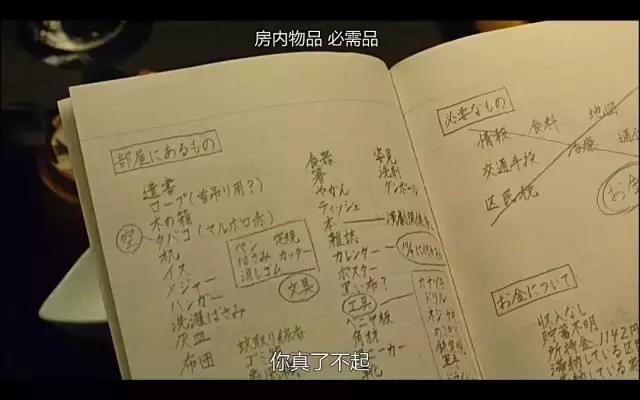 房内物品 必需品
部屋にあるもの
遺書
ロープ(首吊り用?)
木の箱
空
タバコ(マルボロ赤)
机
イス
メジャー
ハンガー
洗濯ばさみ
灰皿
布団
蚊取り線香
ペン 定規
はさみ カッター
消しゴム
文具
食器
箸
やかん
ティッシュ
本
雑誌
カレンダー
ポスター
黒い布?
工具
ベニヤ板
角材
洗剤
ダンボール
カナヅチ
ドリル
ネジ
のこぎり
必要なもの
情報 食料 地図
交通手段 治療
区民税
お金について
収入なし
貯蓄不明
所持金
滞納している
你真了不起